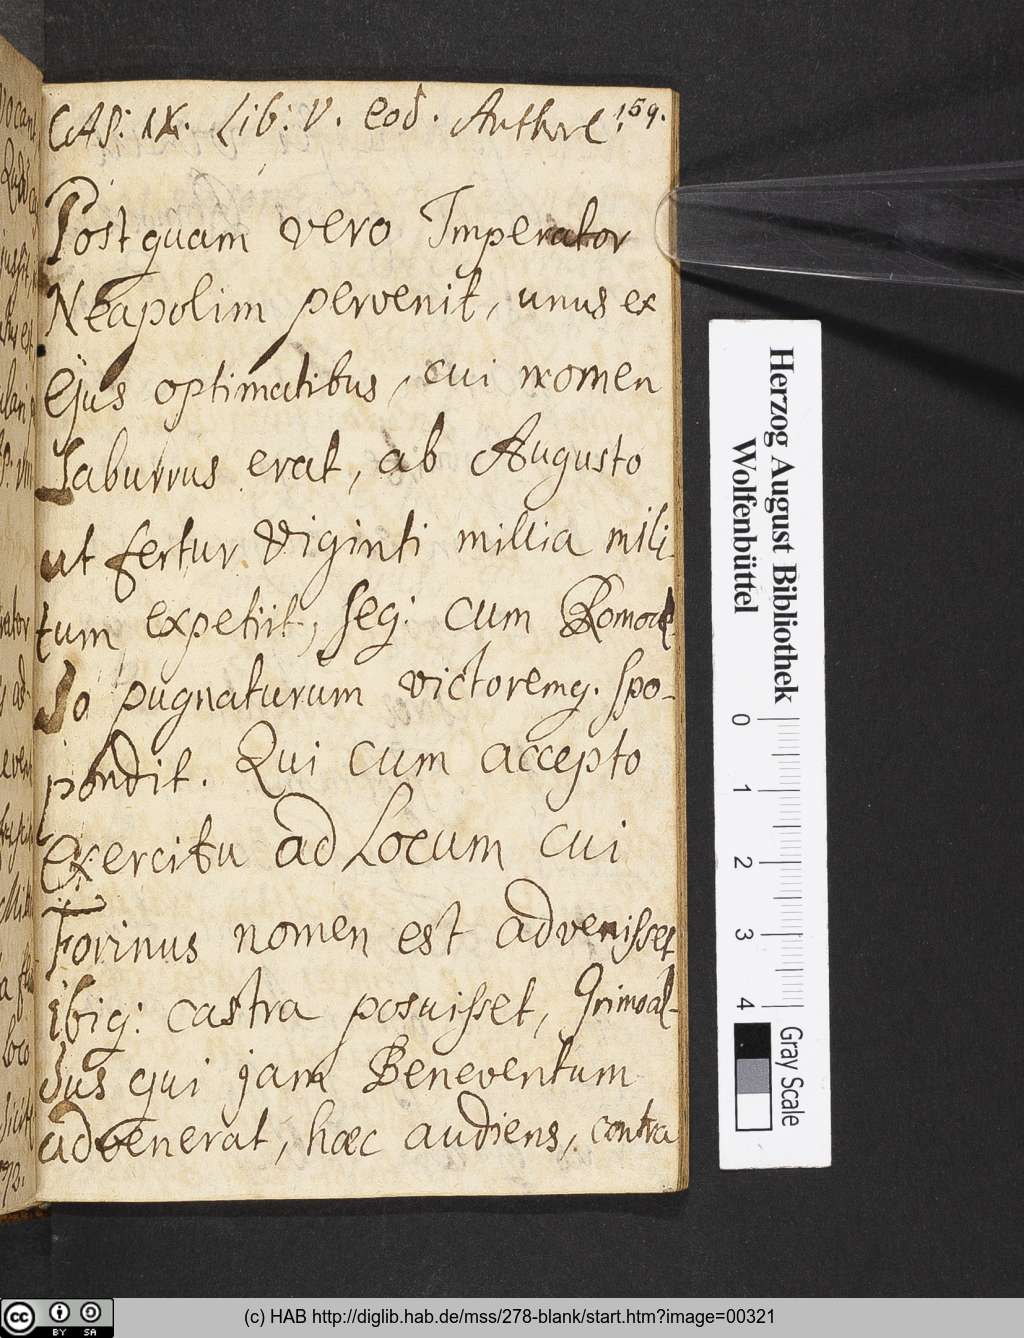 CAP: IX. Lib: V. eod. Authore. 159.
Postquam vero Imperator
Neapolim pervenit, unus ex
ejus optimatibus, cui nomen
Saburrus erat, ab Augusto
ut fertur viginti millia mili
tum expetiit, seq: cum Romoal-
do pugnaturum victoremq. spo-
pondit. Qui cum accepto
exercitu ad Locum cui
Forinus nomen est advenisset
ibiq: castra posuisset, Grimoal-
dus qui jam Beneventum
advenerat, hæc audiens, contra
Herzog August Bibliothek
Wolfenbüttel
0 1 2 3 4
Gray Scale
(c) HAB http://diglib.hab.de/mss/278-blank/start.htm?image=00321
cc BY SA